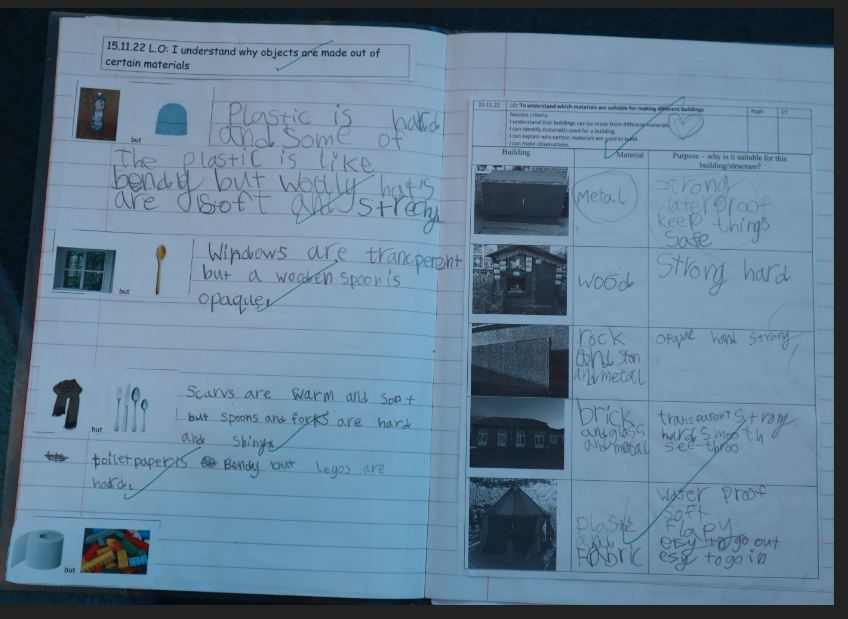 15.11.22 L.O: I understand why objects are made out of
certain materials
but
Plastic is hard
and some of
the plastic is like
bendy but woolly hat's
are soft and strechy
but
Windows are trancperent
but a wooden spoon is
opaque.
but
Scarvs are warm and soft
but spoons and forks are hard
and shiny.
toilet paper is Bendy but legos are
hard.
but
22.11.22 LO: To understand which materials are suitable for making different buildings
Pupil
CT
Success criteria:
I understand that buildings can be made from different materials
I can identify material/s used for a building.
I can explain why certain materials are used to build.
I can make observations.
Building
Material
Purpose – why is it suitable for this
building/structure?
metal
strong
waterproof
keep things
safe
wood
Strong hard
rock
and
and metal
opaque hard strong
brick
and glass
and metal
transparent strong
hard smooth
see-throo
plastic
and
FABRIC
water proof
soft
flapy
esy to go out
esy to go in